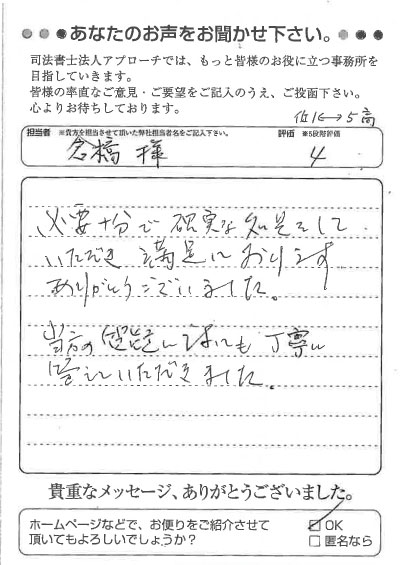 あなたのお声をお聞かせ下さい。
司法書士法人アプローチでは、もっと皆様のお役に立つ事務所を
目指していきます。
皆様の率直なご意見・ご要望をご記入のうえ、ご投函下さい。
心よりお待ちしております。
低1↔5高
担当者 ※貴方を担当させて頂いた弊社担当者名をご記入下さい。 評価 ※5段階評価
倉橋 様 4
必要十分で確実な知見をして
いただき満足しております
ありがとうございました。
当方の に対しても丁寧に
答えていただきました。
貴重なメッセージ、ありがとうございました。
ホームページなどで、お便りをご紹介させて
頂いてもよろしいでしょうか?
OK
匿名なら